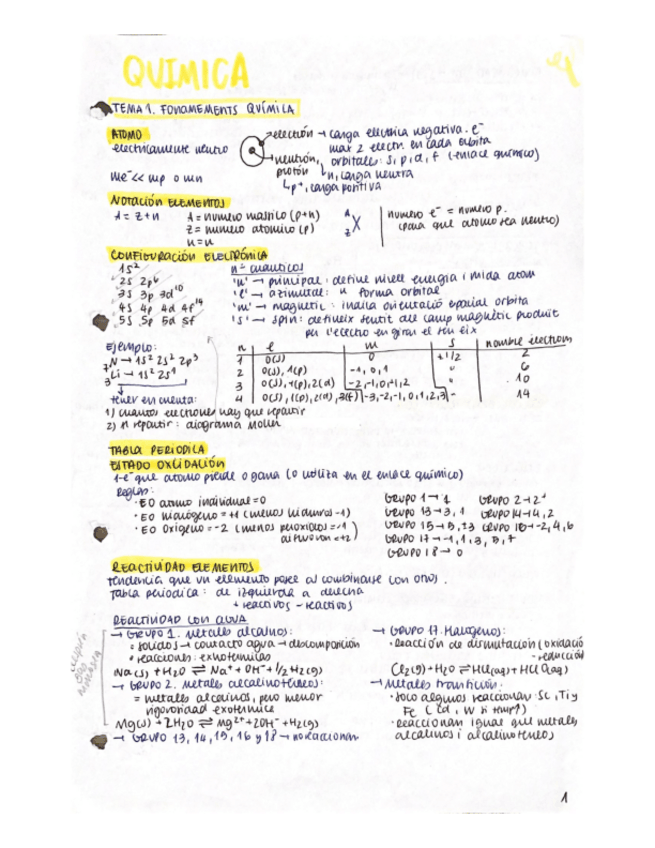 QUIMICA
TEMA 1. FONAMEMENTS QUÍMICA
ATOMO
electricamente neutro
electrón → carga electrica negativa. e⁻
max 2 electr. en cada orbita
orbitales: s, p, d, f (enlace químico)
neutrón,
protón
n, carga neutra
p⁺, carga positiva
me⁻ << mp o mn
NOTACIÓN ELEMENTOS
A = Z + n
A = numero masico (p+n)
Z = numero atomico (p)
n = n
A
Z X
numero e⁻ = numero p.
(para que atomo sea neutro)
CONFIGURACIÓN ELECTRÓNICA
1s²
2s 2p⁶
3s 3p 3d¹⁰
4s 4p 4d 4f¹⁴
5s 5p 5d 5f
nº cuanticos
'n' → principal: define nivell energia i mida atom
'l' → azimutal: forma orbital
'm' → magnetic: indica orientació espacial orbita
's' → spin: defineix sentit del camp magnètic produit
per l'electro en girar el seu eix
Ejemplo:
₇N → 1s² 2s² 2p³
₃Li → 1s² 2s¹
tener en cuenta:
1) cuantos electrones hay que repartir
2) repartir: diagrama Moller
n l m s nombre electrons
1 0(s) 0 +1/2 2
2 0(s), 1(p) -1, 0, 1 " 6
3 0(s), 1(p), 2(d) -2, -1, 0, +1, 2 " 10
4 0(s), 1(p), 2(d), 3(f) -3, -2, -1, 0, 1, 2, 3 - 14
TABLA PERIODICA
ESTADO OXIDACIÓN
1-e⁻ que atomo pierde o gana (o utiliza en el enlace químico)
Reglas:
· EO atomo individual = 0
· EO hidrógeno = +1 (menos hidruros -1)
· EO Oxigeno = -2 (menos peroxidos = -1
= +2)
GRUPO 1 → 1 GRUPO 2 → 2
GRUPO 13 → 3, 1 GRUPO 14 → 4, 2
GRUPO 15 → GRUPO 16 → -2, 4, 6
GRUPO 17 → -1, 1, 3, 5, 7
GRUPO 18 → 0
REACTIVIDAD ELEMENTOS
tendencia que un elemento posee al combinarse con otros.
Tabla periodica: de izquierda a derecha
+ reactivos - reactivos
REACTIVIDAD CON AGUA
→ GRUPO 1. Metales alcalinos:
= solidos → contacto agua → descomposición
· reacciones: exotermicas
Na(s) + H₂O ⇌ Na⁺ + OH⁻ + 1/2 H₂(g)
→ GRUPO 2. Metales alcalinoterreos:
= metales alcalinos, pero menor
rigorosidad exotermica
Mg(s) + 2H₂O ⇌ Mg²⁺ + 2OH⁻ + H₂(g)
→ GRUPO 13, 14, 15, 16 y 18 → no reaccionan
→ GRUPO 17. Halogenos:
· Reacción de dismutación (oxidació
- reducción
Cl₂(g) + H₂O ⇌ HCl(aq) + HClO(aq)
→ Metales transición:
· Solo algunos reaccionan: Sc, Ti y
Fe (Cd, W
· Reaccionan igual que metales
alcalinos i alcalinoterreos
1